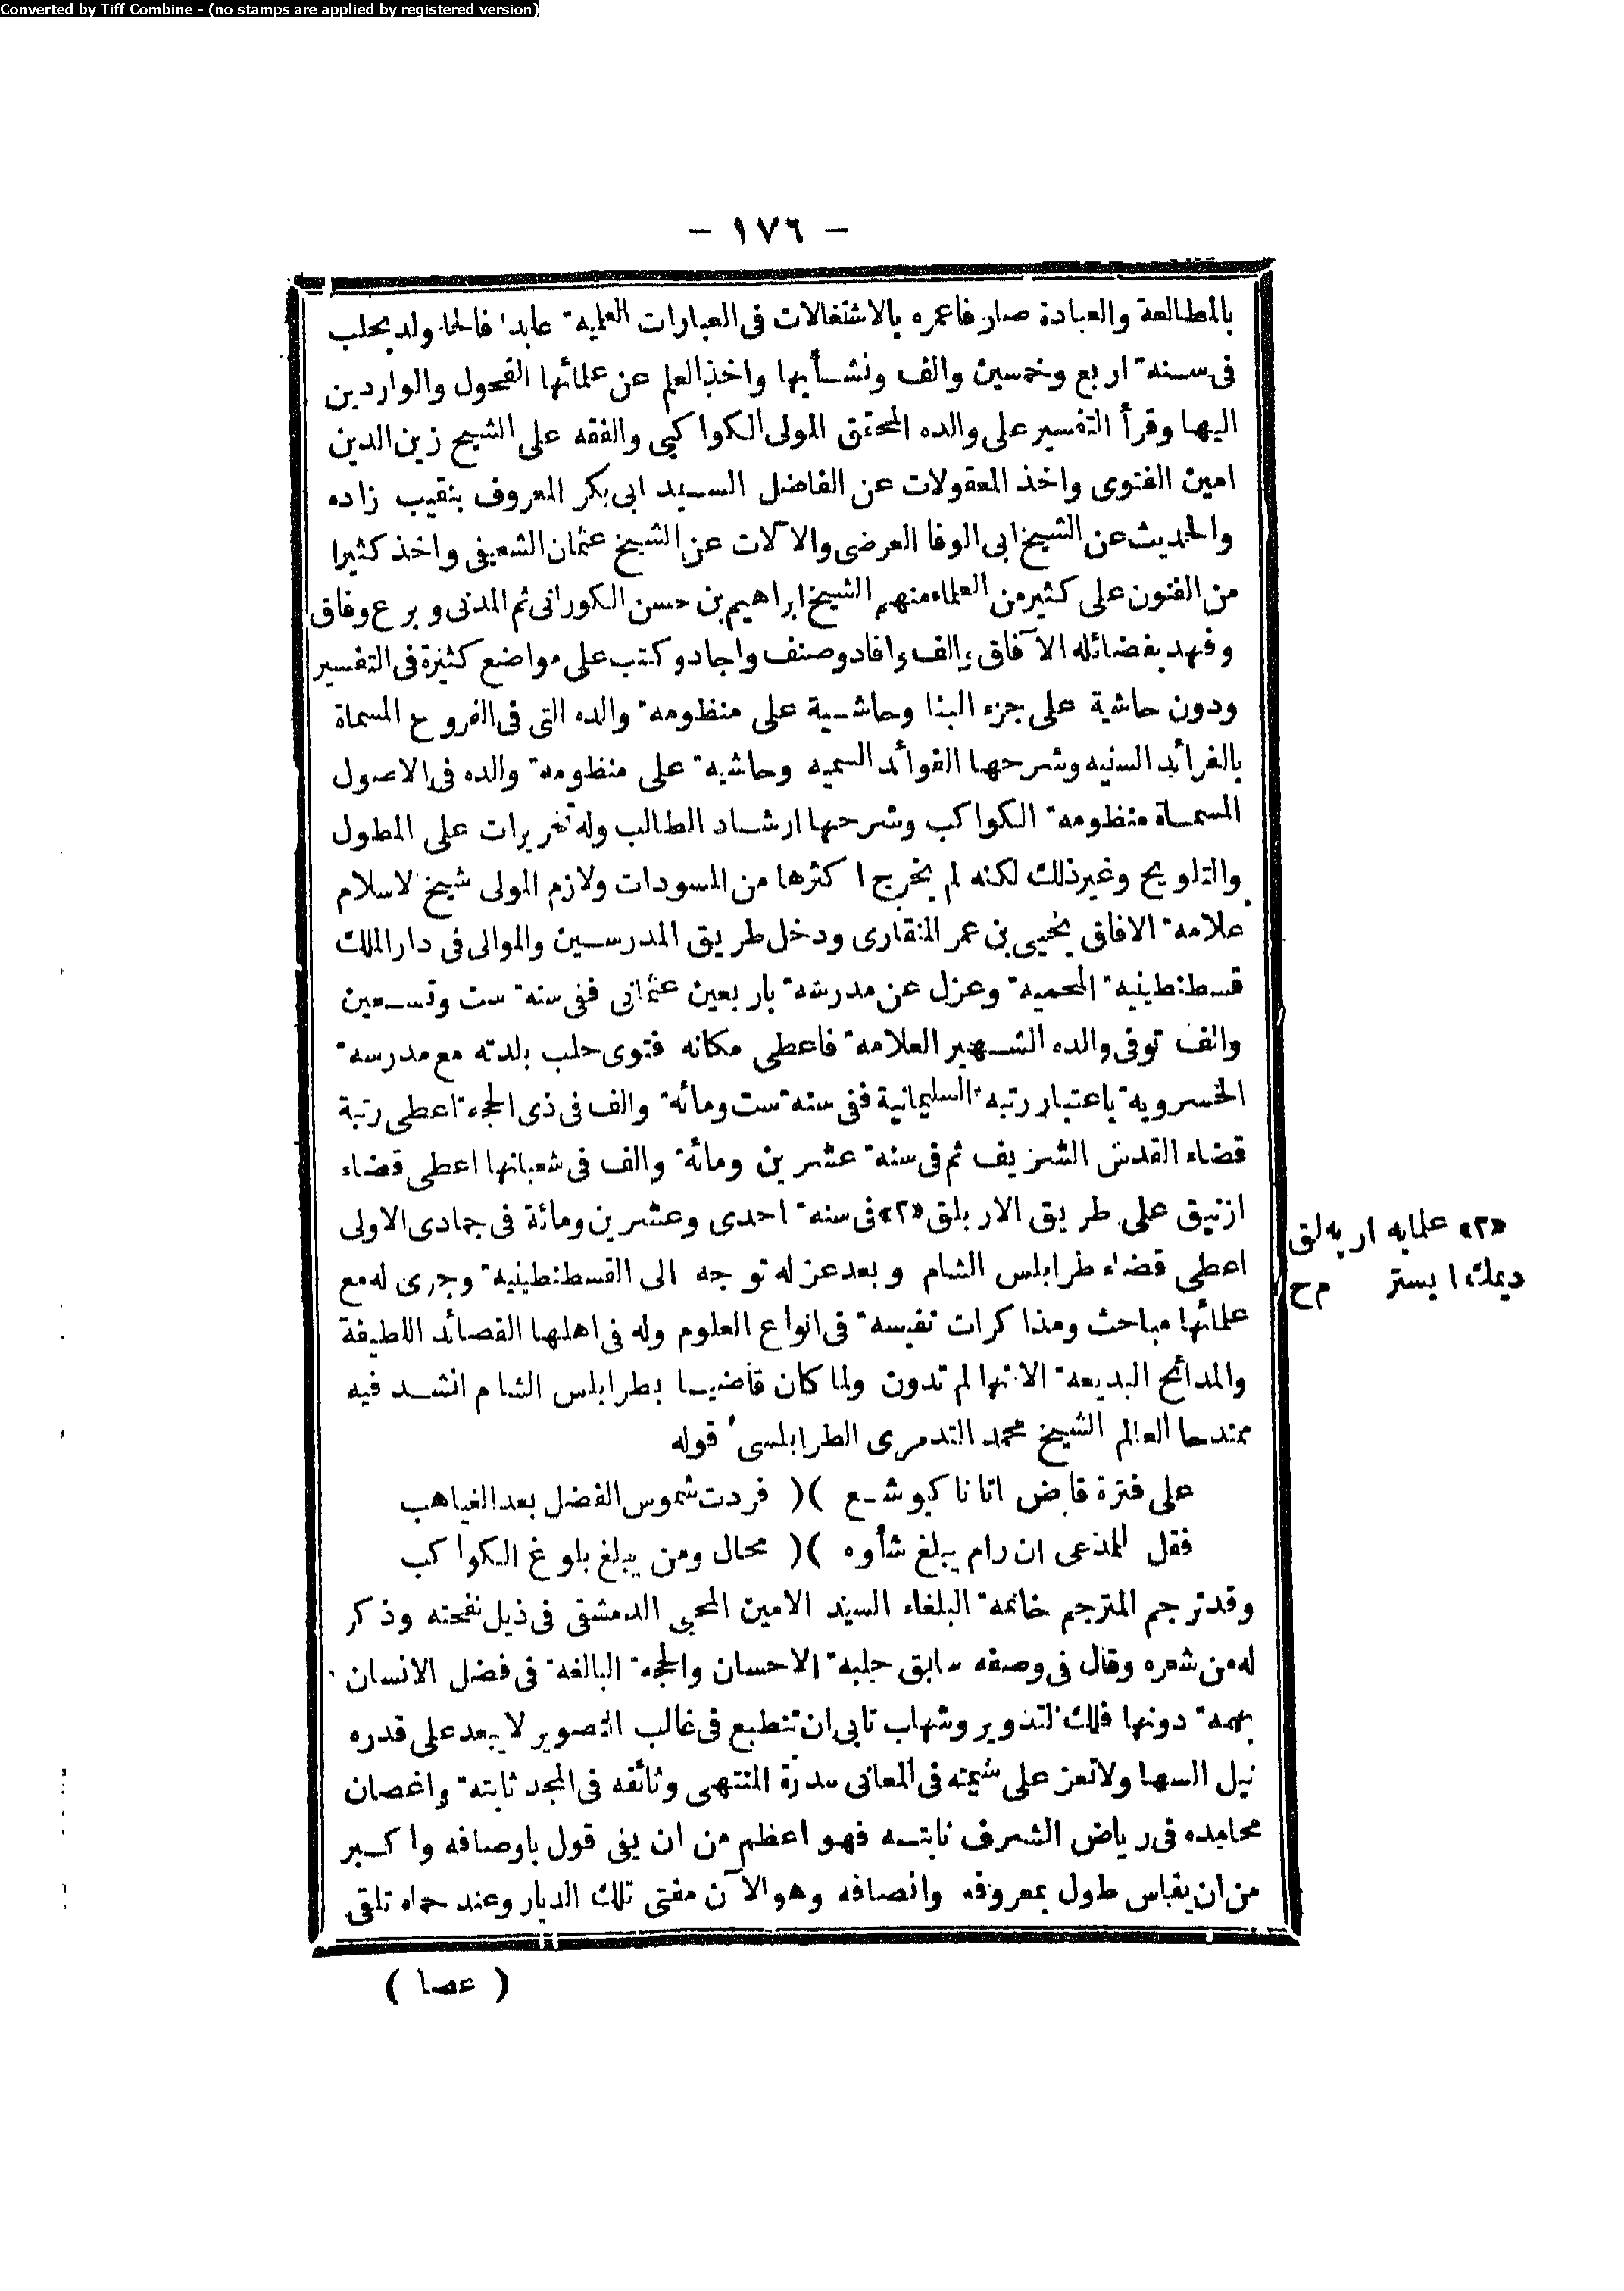 Converted by Tiff Combine - (no stamps are applied by registered version)
- ١٧٦ -
بالمطالعة والعبادة صارفا عمره بالاشتغالات فى العبارات العلميه عابدا فالحا ولد بحلب
فى سنة اربع وخمسين والف ونشأبها واخذ العلم عن علمائها الفحول والواردين
اليها وقرأ التفسير على والده المحقق المولى الكواكبى والفقه على الشيخ زين الدين
امين الفتوى واخذ المعقولات عن الفاضل السيد ابى بكر المعروف بنقيب زاده
والحديث عن الشيخ ابى الوفا العرضى والآلات عن الشيخ عثمان الشعيفى واخذ كثيرا
من الفنون على كثير من العلماء منهم الشيخ ابراهيم بن حسن الكورانى ثم المدنى وبرع وفاق
وفهد بفضائله الآفاق والف وافاد وصنف واجاد وكتب على مواضع كثيرة فى التفسير
ودون حاشية على جزء البنا وحاشية على منظومة والده التى فى الفروع المسماة
بالفرائد السنيه وشرحها الفوائد السميه وحاشية على منظومة والده فى الاصول
المسماة منظومة الكواكب وشرحها ارشاد الطالب وله تحريرات على المطول
والتلويح وغير ذلك لكنه لم يخرج اكثرها من المسودات ولازم المولى شيخ لاسلام
علامة الافاق يحيى بن عمر المنقارى ودخل طريق المدرسين والموالى فى دار الملك
قسطنطينية المحمية وعزل عن مدرسة باربعين عثمانى ففى سنة ست وتسعين
والف توفى والده الشهير العلامة فاعطى مكانه فتوى حلب بلدته مع مدرسة
الخسروية باعتبار رتبة السليمانية ففى سنة ست ومائة والف فى ذى الحجة اعطى رتبة
قضاء القدس الشريف ثم فى سنة عشرين ومائة والف فى شعبانها اعطى قضاء
ازنيق على طريق الاربلق «٢» فى سنة احدى وعشرين ومائة فى جمادى الاولى
اعطى قضاء طرابلس الشام وبعد عزله توجه الى القسطنطينية وجرى له مع
علمائها مباحث ومذاكرات نفيسة فى انواع العلوم وله فى اهلها القصائد اللطيفة
والمدائح البديعة الا انها لم تدون ولما كان قاضيا بطرابلس الشام انشد فيه
ممتدحا العالم الشيخ محمد التدمرى الطرابلسى قوله
على فترة قاض اتانا كيوشع )( فردت شموس الفضل بعد الغياهب
فقل للمذعى ان رام يبلغ شأوه )( محال ومن يبلغ بلوغ الكواكب
وقد ترجم المترجم خاتمة البلغاء السيد الامين المحبى الدمشقى فى ذيل نفحته وذكر
له من شعره وقال فى وصفه سابق حلبة الاحسان والحجة البالغة فى فضل الانسان
بهمة دونها فلك لتدوير وشهاب تابى ان تنطبع فى غالب التصوير لا يبعد على قدره
نيل السها ولا تعز على شيمته فى المعانى سدرة المنتهى وثائقه فى المجد ثابتة واغصان
محامده فى رياض الشرف نابته فهو اعظم من ان يفى قول باوصافه واكبر
من ان يقاس طول بمعروفه وانصافه وهو الآن مفتى تلك الديار وعند حماه تلقى
( عصا )
«٢» علمايه اربه لق
ديمك ايستر م ح